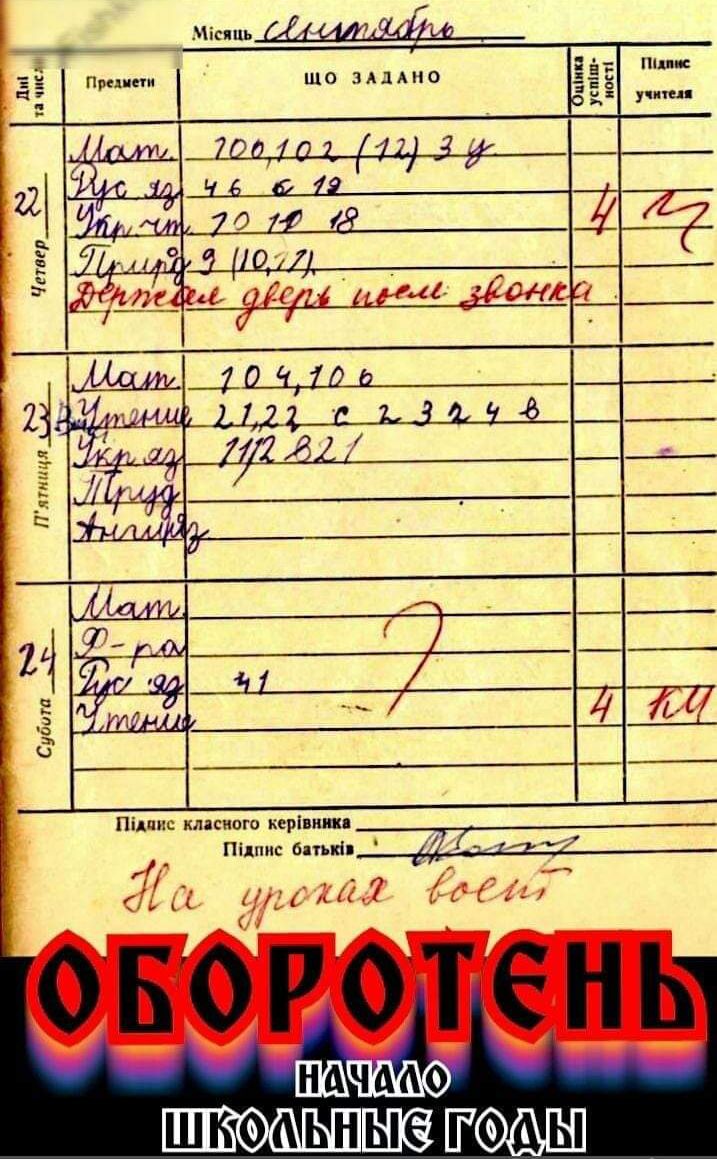 Місяць Сентябрь
Дні та число
Предмети
ЩО ЗАДАНО
Оцінка успішності
Підпис учителя
22 Четвер
Мат. 100,102 (12) 3 у
Рус яз 46 6 12
Укр чт. 70 18 4
Природ 9 (10,11).
Держал дверь после звонка
23 П'ятниця
Мат. 104,106
Чтение 21,22 с 2 3 2 4 в
Укр яз 112 821
Труд
Англ яз
24 Субота
Мат.
Ф-ра
Рус яз 41
Чтение 4 КМ
Підпис класного керівника
Підпис батьків
На уроках воет
ОБОРОТЕНЬ
НАЧАЛО
ШКОЛЬНЫЕ ГОДЫ